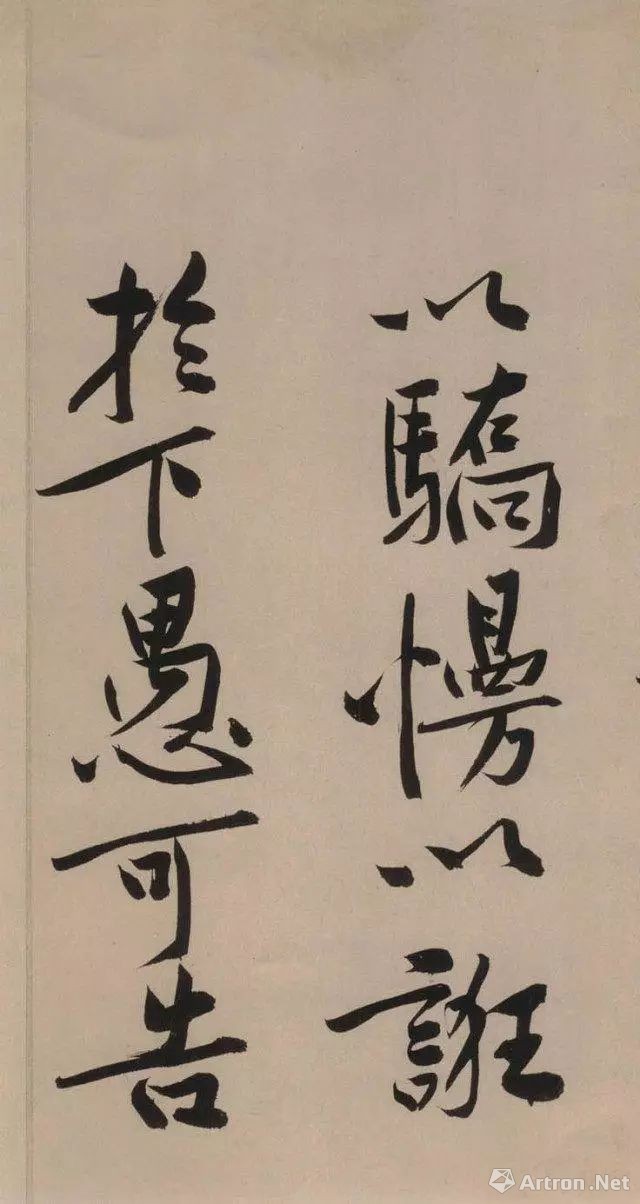 以驕慢以誑
於下愚可告
Artron.Net